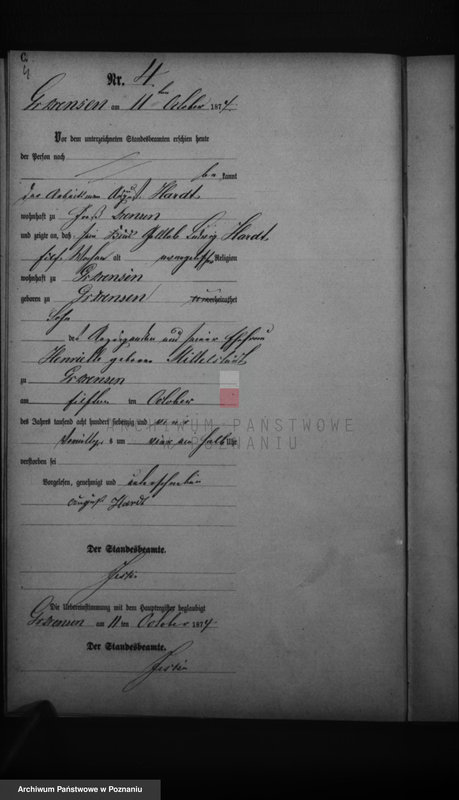 C.
4
Nr. 4
am 11ten October 1874
Vor dem unterzeichneten Standesbeamten erschien heute
der Person nach
bekannt
der Arbeitsmann August Hardt
wohnhaft zu Groß
und zeigte an, daß sein Kind Gottlieb Ludwig Hardt
Wochen alt evangelischer Religion
wohnhaft zu
geboren zu
Sohn
des und seiner Ehefrau
Henriette geborene Mittelstädt
zu
am ten October
des Jahres tausend acht hundert siebenzig und vier
Vormittags um vier ein halb Uhr
verstorben sei
Vorgelesen, genehmigt und unterschrieben
August Hardt
Der Standesbeamte.
Die Uebereinstimmung mit dem Hauptregister beglaubigt
am 11ten October 1874
Der Standesbeamte.
ARCHIWUM PAŃSTWOWE
W POZNANIU
Archiwum Państwowe w Poznaniu